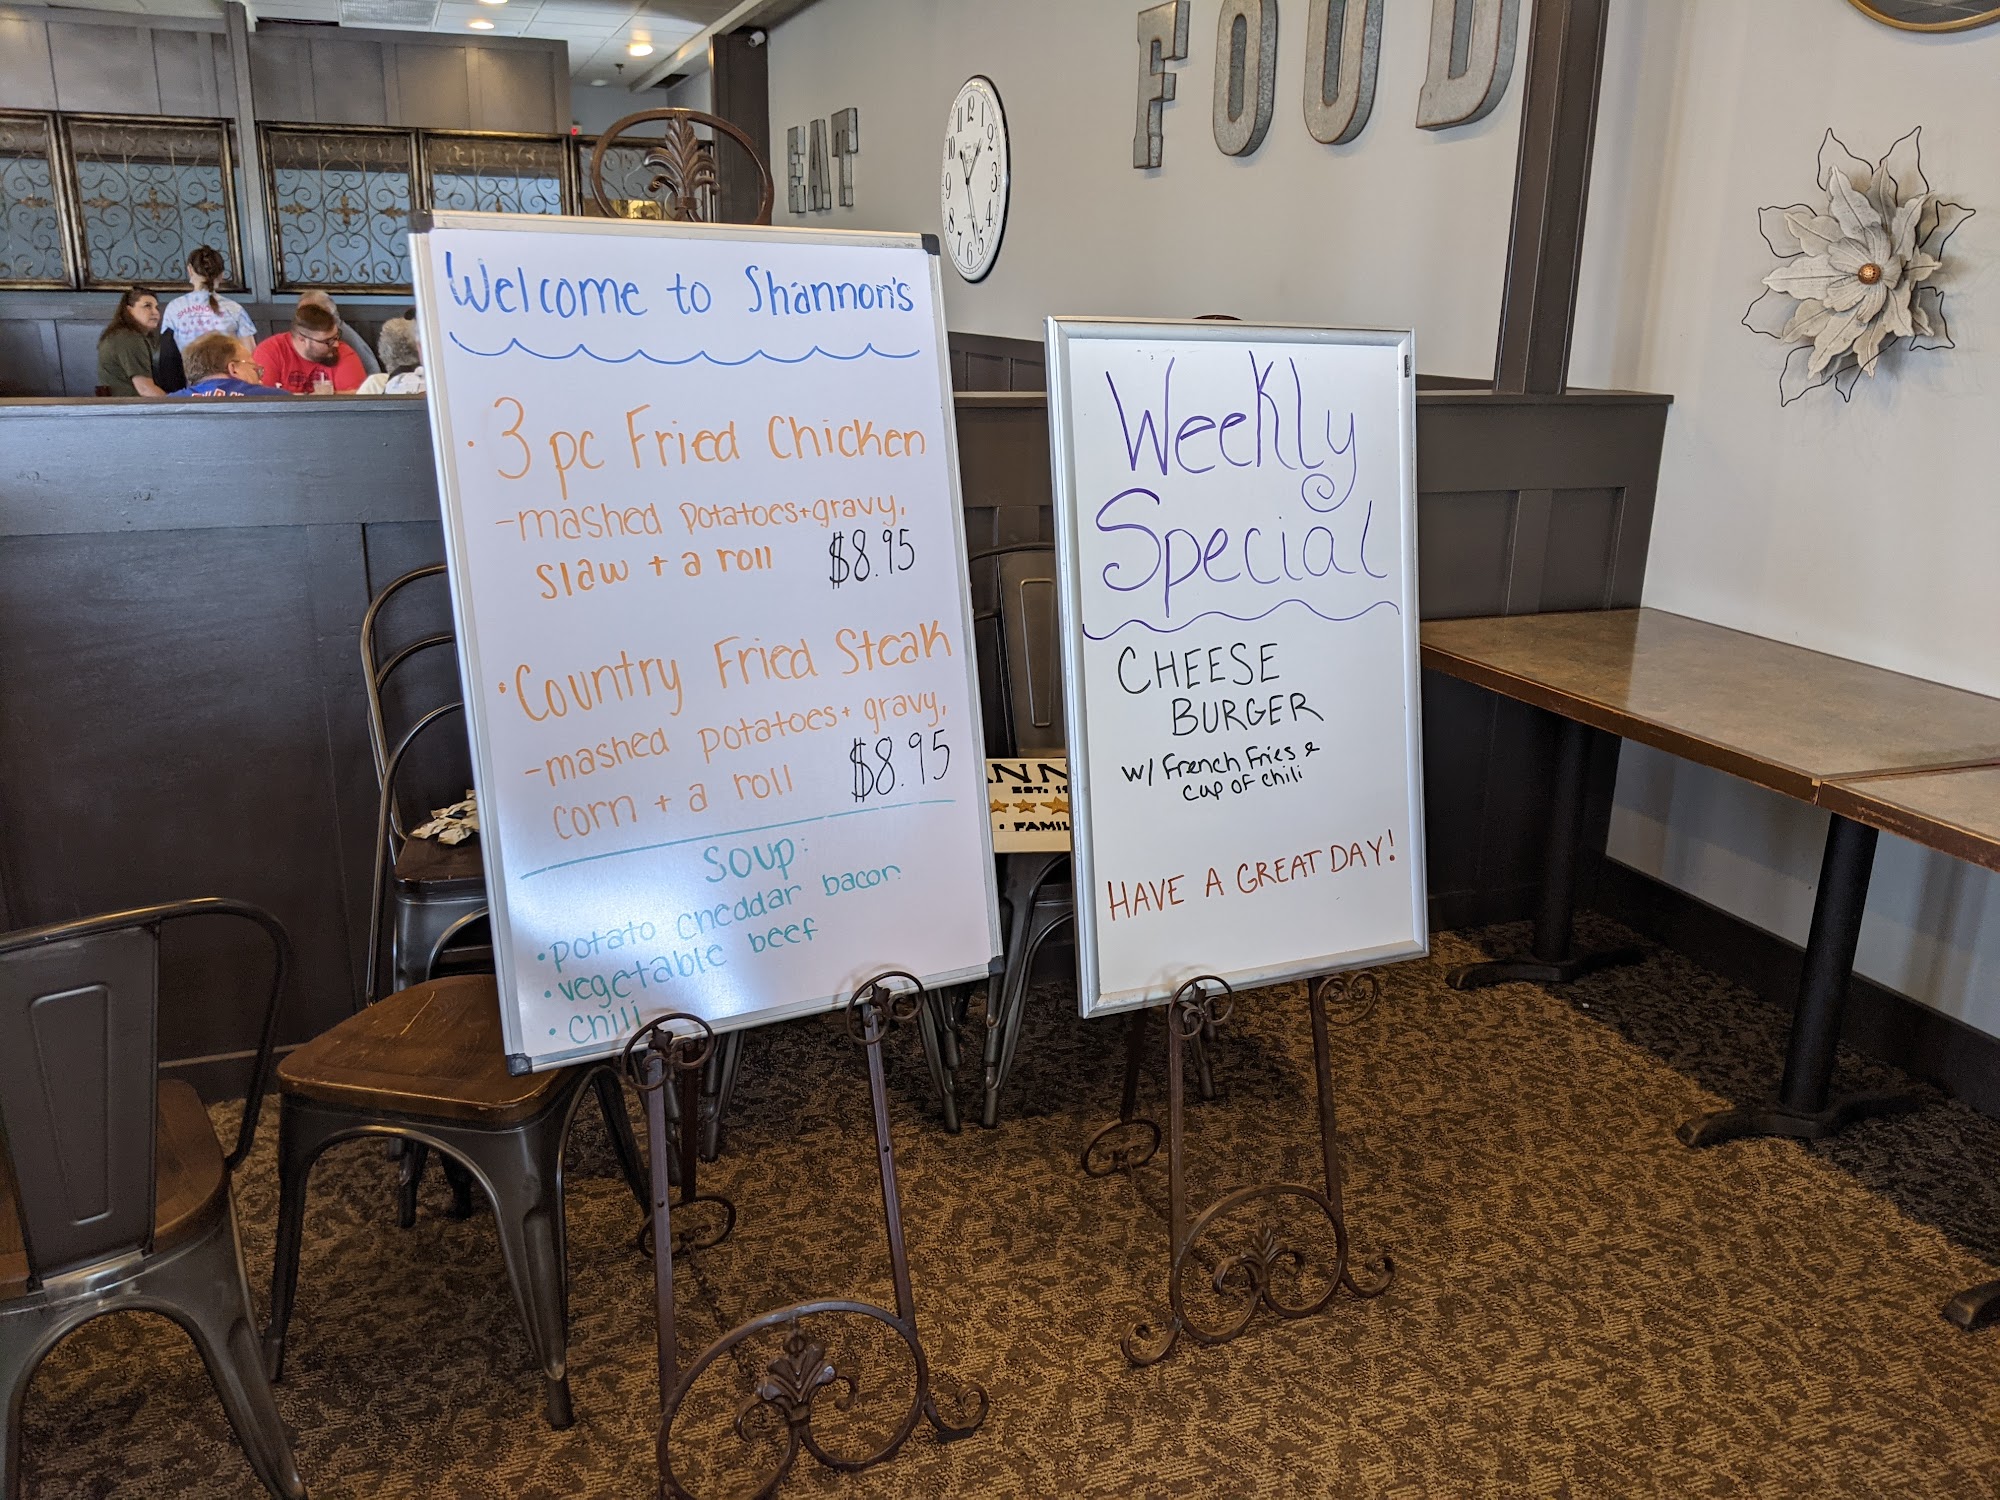 EAT
FOOD
12
2
3
4
5
6
7
8
9
10
11
SHANNON
Welcome to Shannon's
• 3 pc Fried Chicken
- mashed potatoes + gravy,
slaw + a roll $8.95
• Country Fried Steak
- mashed potatoes + gravy,
corn + a roll $8.95
Soup:
• potato cheddar bacon
• vegetable beef
• chili
Weekly
Special
CHEESE
BURGER
w/ French Fries &
cup of chili
HAVE A GREAT DAY!
ANN
EST. 19
• FAMIL